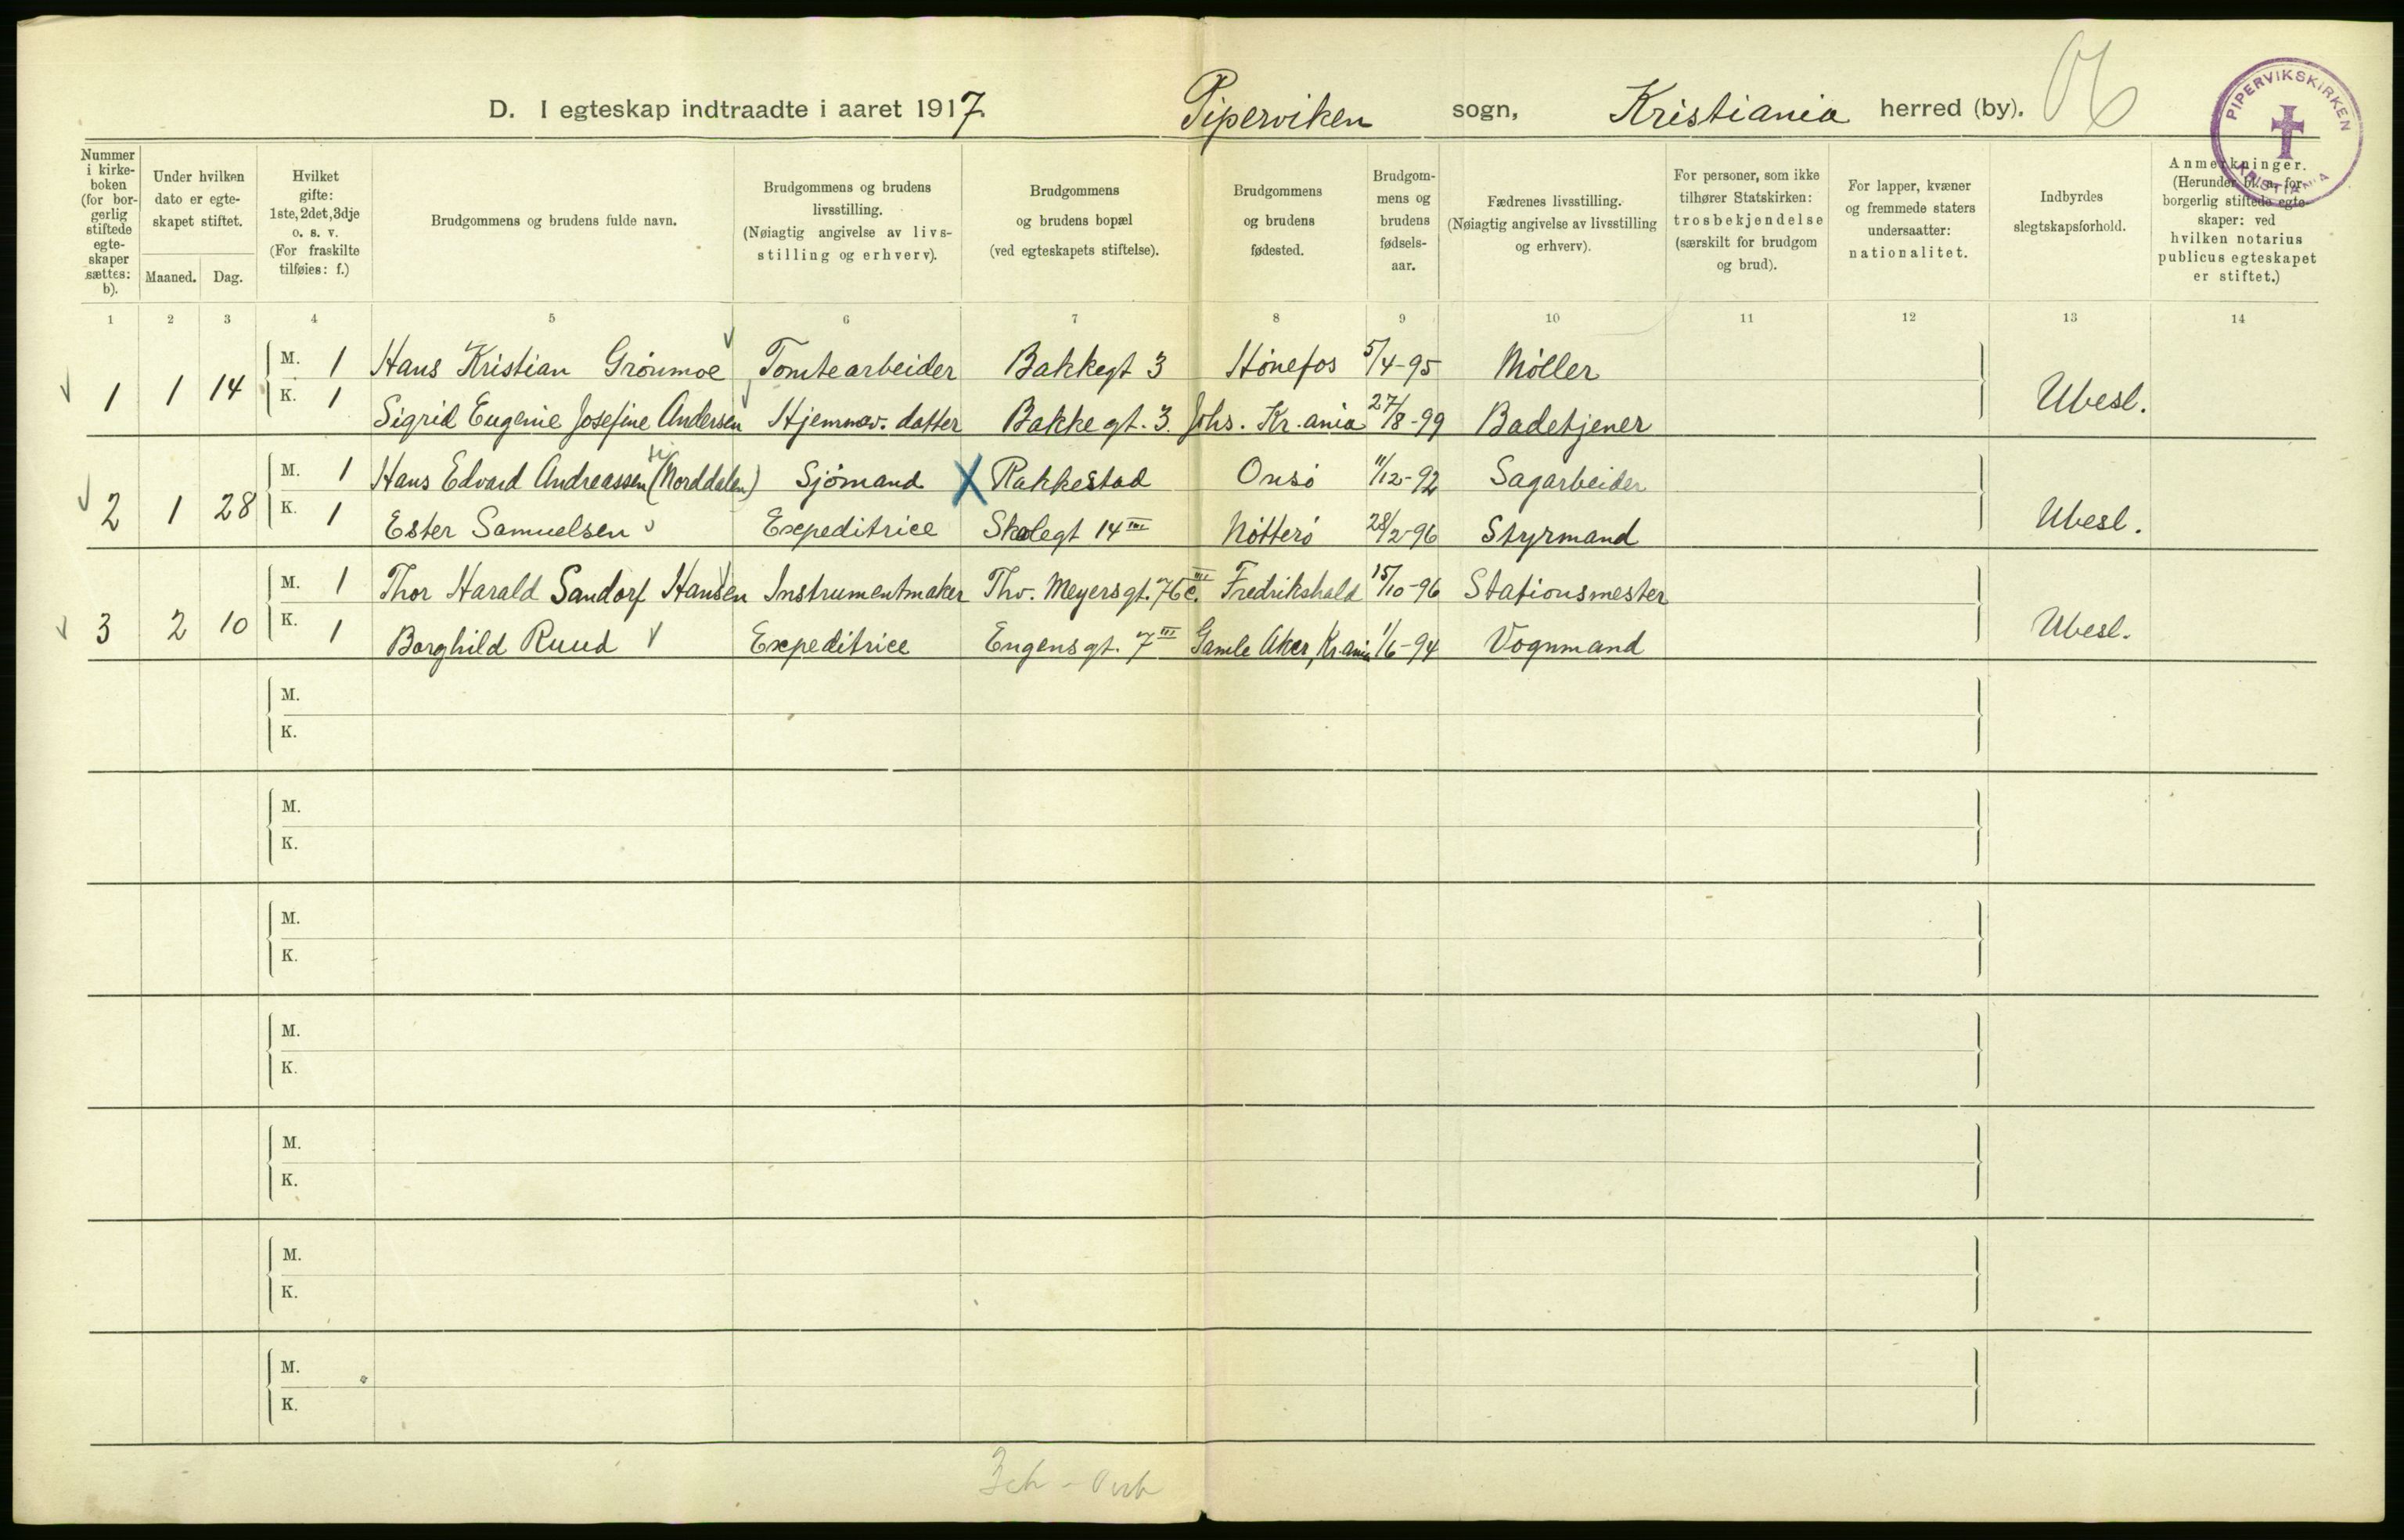 D. I egteskap indtraadte i aaret 1917. Piperviken sogn, Kristiania herred (by).
PIPERVIKSKIRKEN KRISTIANIA
Nummer i kirke-boken (for bor-gerlig stiftede egte-skaper sættes: b).
Under hvilken dato er egte-skapet stiftet.
Maaned. Dag.
Hvilket gifte: 1ste, 2det, 3dje o. s. v. (For fraskilte tilføies: f.)
Brudgommens og brudens fulde navn.
Brudgommens og brudens livsstilling. (Nøiagtig angivelse av livs-stilling og erhverv).
Brudgommens og brudens bopæl (ved egteskapets stiftelse).
Brudgommens og brudens fødested.
Brudgom-mens og brudens fødsels-aar.
Fædrenes livsstilling. (Nøiagtig angivelse av livsstilling og erhverv).
For personer, som ikke tilhører Statskirken: trosbekjendelse (særskilt for brudgom og brud).
For lapper, kvæner og fremmede staters undersaatter: nationalitet.
Indbyrdes slegtskapsforhold.
Anmerkninger. (Herunder bl. a. for borgerlig stiftede egte-skaper: ved hvilken notarius publicus egteskapet er stiftet.)
1 2 3 4 5 6 7 8 9 10 11 12 13 14
M. 1 Hans Kristian Grønmoe Tomtearbeider Bakkegt 3 Hønefos 5/4-95 Møller
1 1 14 Ubesl.
K. 1 Sigrid Eugenie Josefine Andersen Hjemmev. datter Bakkegt. 3. Johs. Kr.ania 27/8-99 Badetjener
M. 1 Hans Edvard Andreassen (Norddalen) Sjømand X Rakkestad Onsø 11/12-92 Sagarbeider
2 1 28 Ubesl.
K. 1 Ester Samuelsen Expeditrice Skolegt 14 III Nøtterø 28/2-96 Styrmand
M. 1 Thor Harald Sandorf Hansen Instrumentmaker Thv. Meyersgt. 76c. III Fredrikshald 15/10-96 Stationsmester
3 2 10 Ubesl.
K. 1 Borghild Ruud Expeditrice Engensgt. 7 III Gamle Aker, Kr.ania 1/6-94 Vognmand
M.
K.
M.
K.
M.
K.
M.
K.
M.
K.
M.
K.
M.
K.